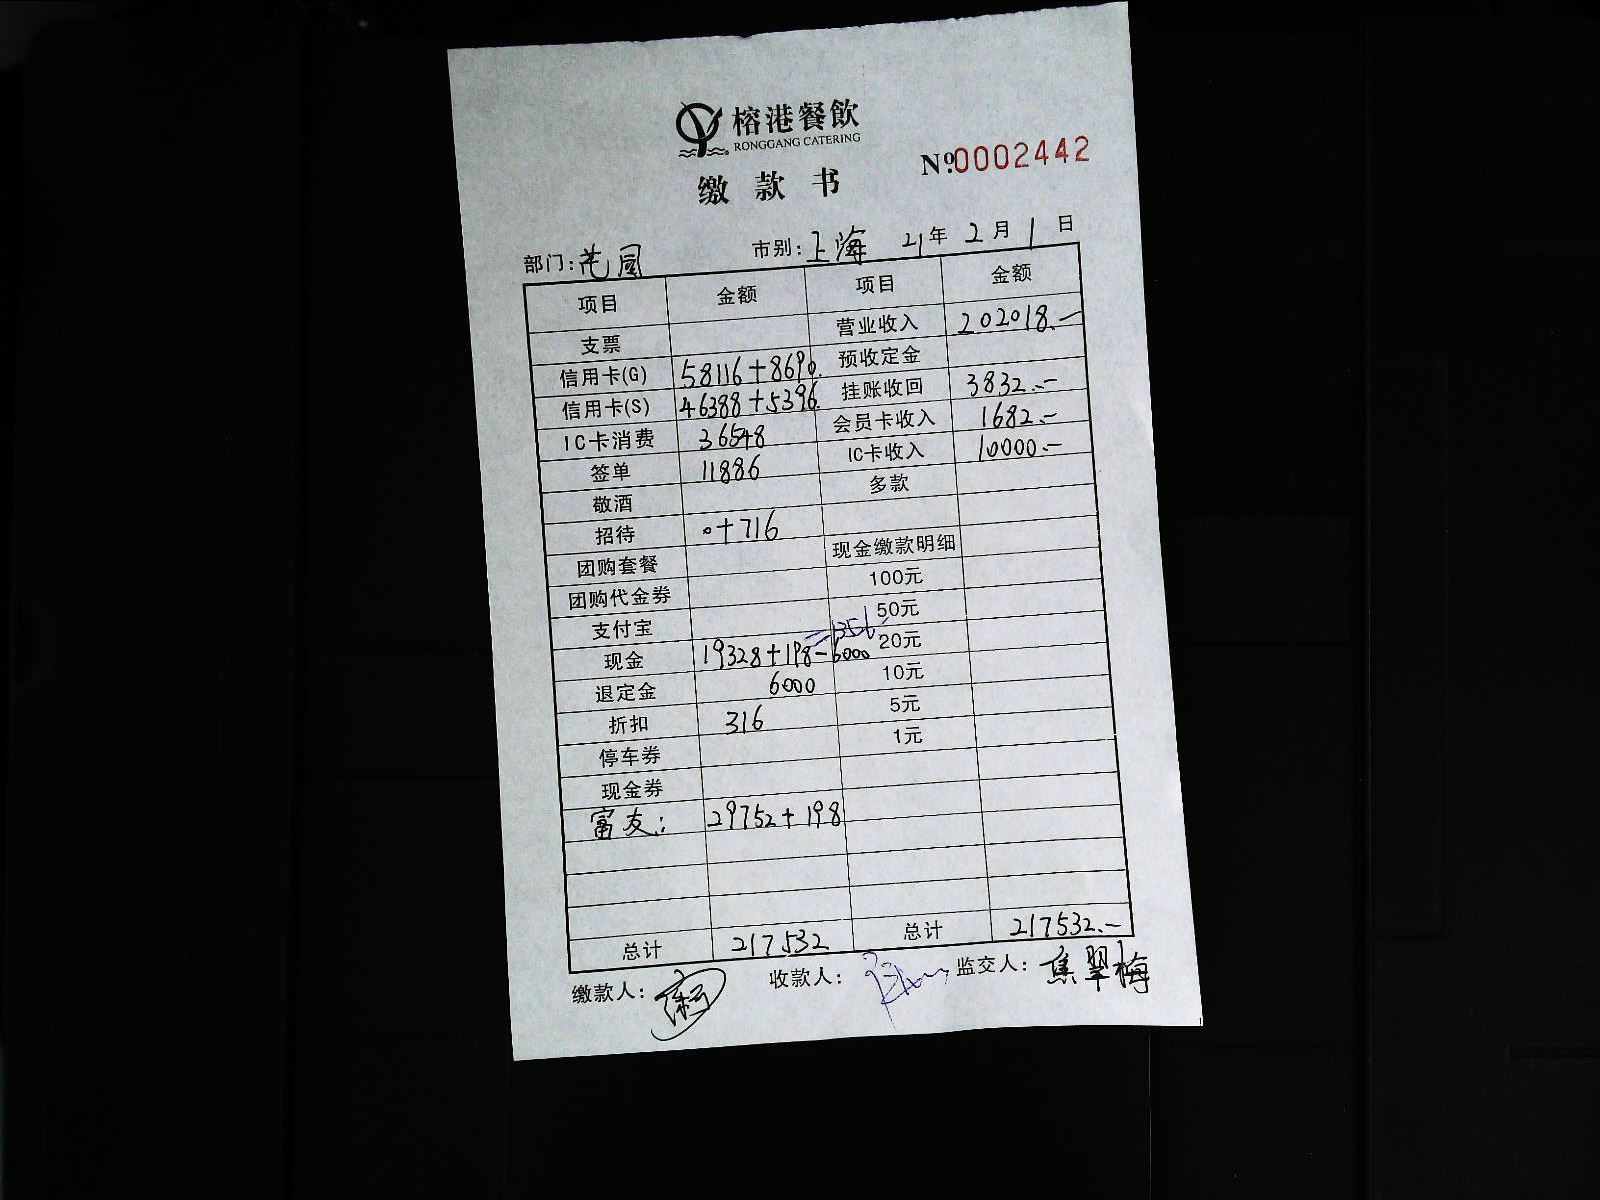 榕港餐飲
RONGGANG CATERING
№0002442
缴款书
部门: 花园 市别: 上海 21年 2月 1日
项目 金额 项目 金额
支票 营业收入 202018.-
信用卡(G) 58116+8690. 预收定金
信用卡(S) 46388+5396. 挂账收回 3832.-
IC卡消费 36548 会员卡收入 1682.-
签单 11886 IC卡收入 10000.-
敬酒 多款
招待 0+716
团购套餐 现金缴款明细
团购代金券 100元
支付宝 50元
现金 19328+198-6000 20元
退定金 6000 10元
折扣 316 5元
停车券 1元
现金券
富友: 29752+198
总计 217532 总计 217532.-
缴款人: 收款人: 监交人: 焦翠梅